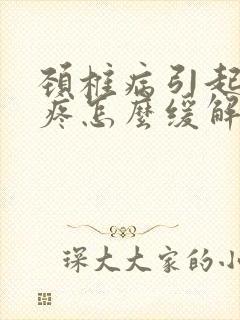 頚椎病引起
疼怎麼缓解
琛大大家的小